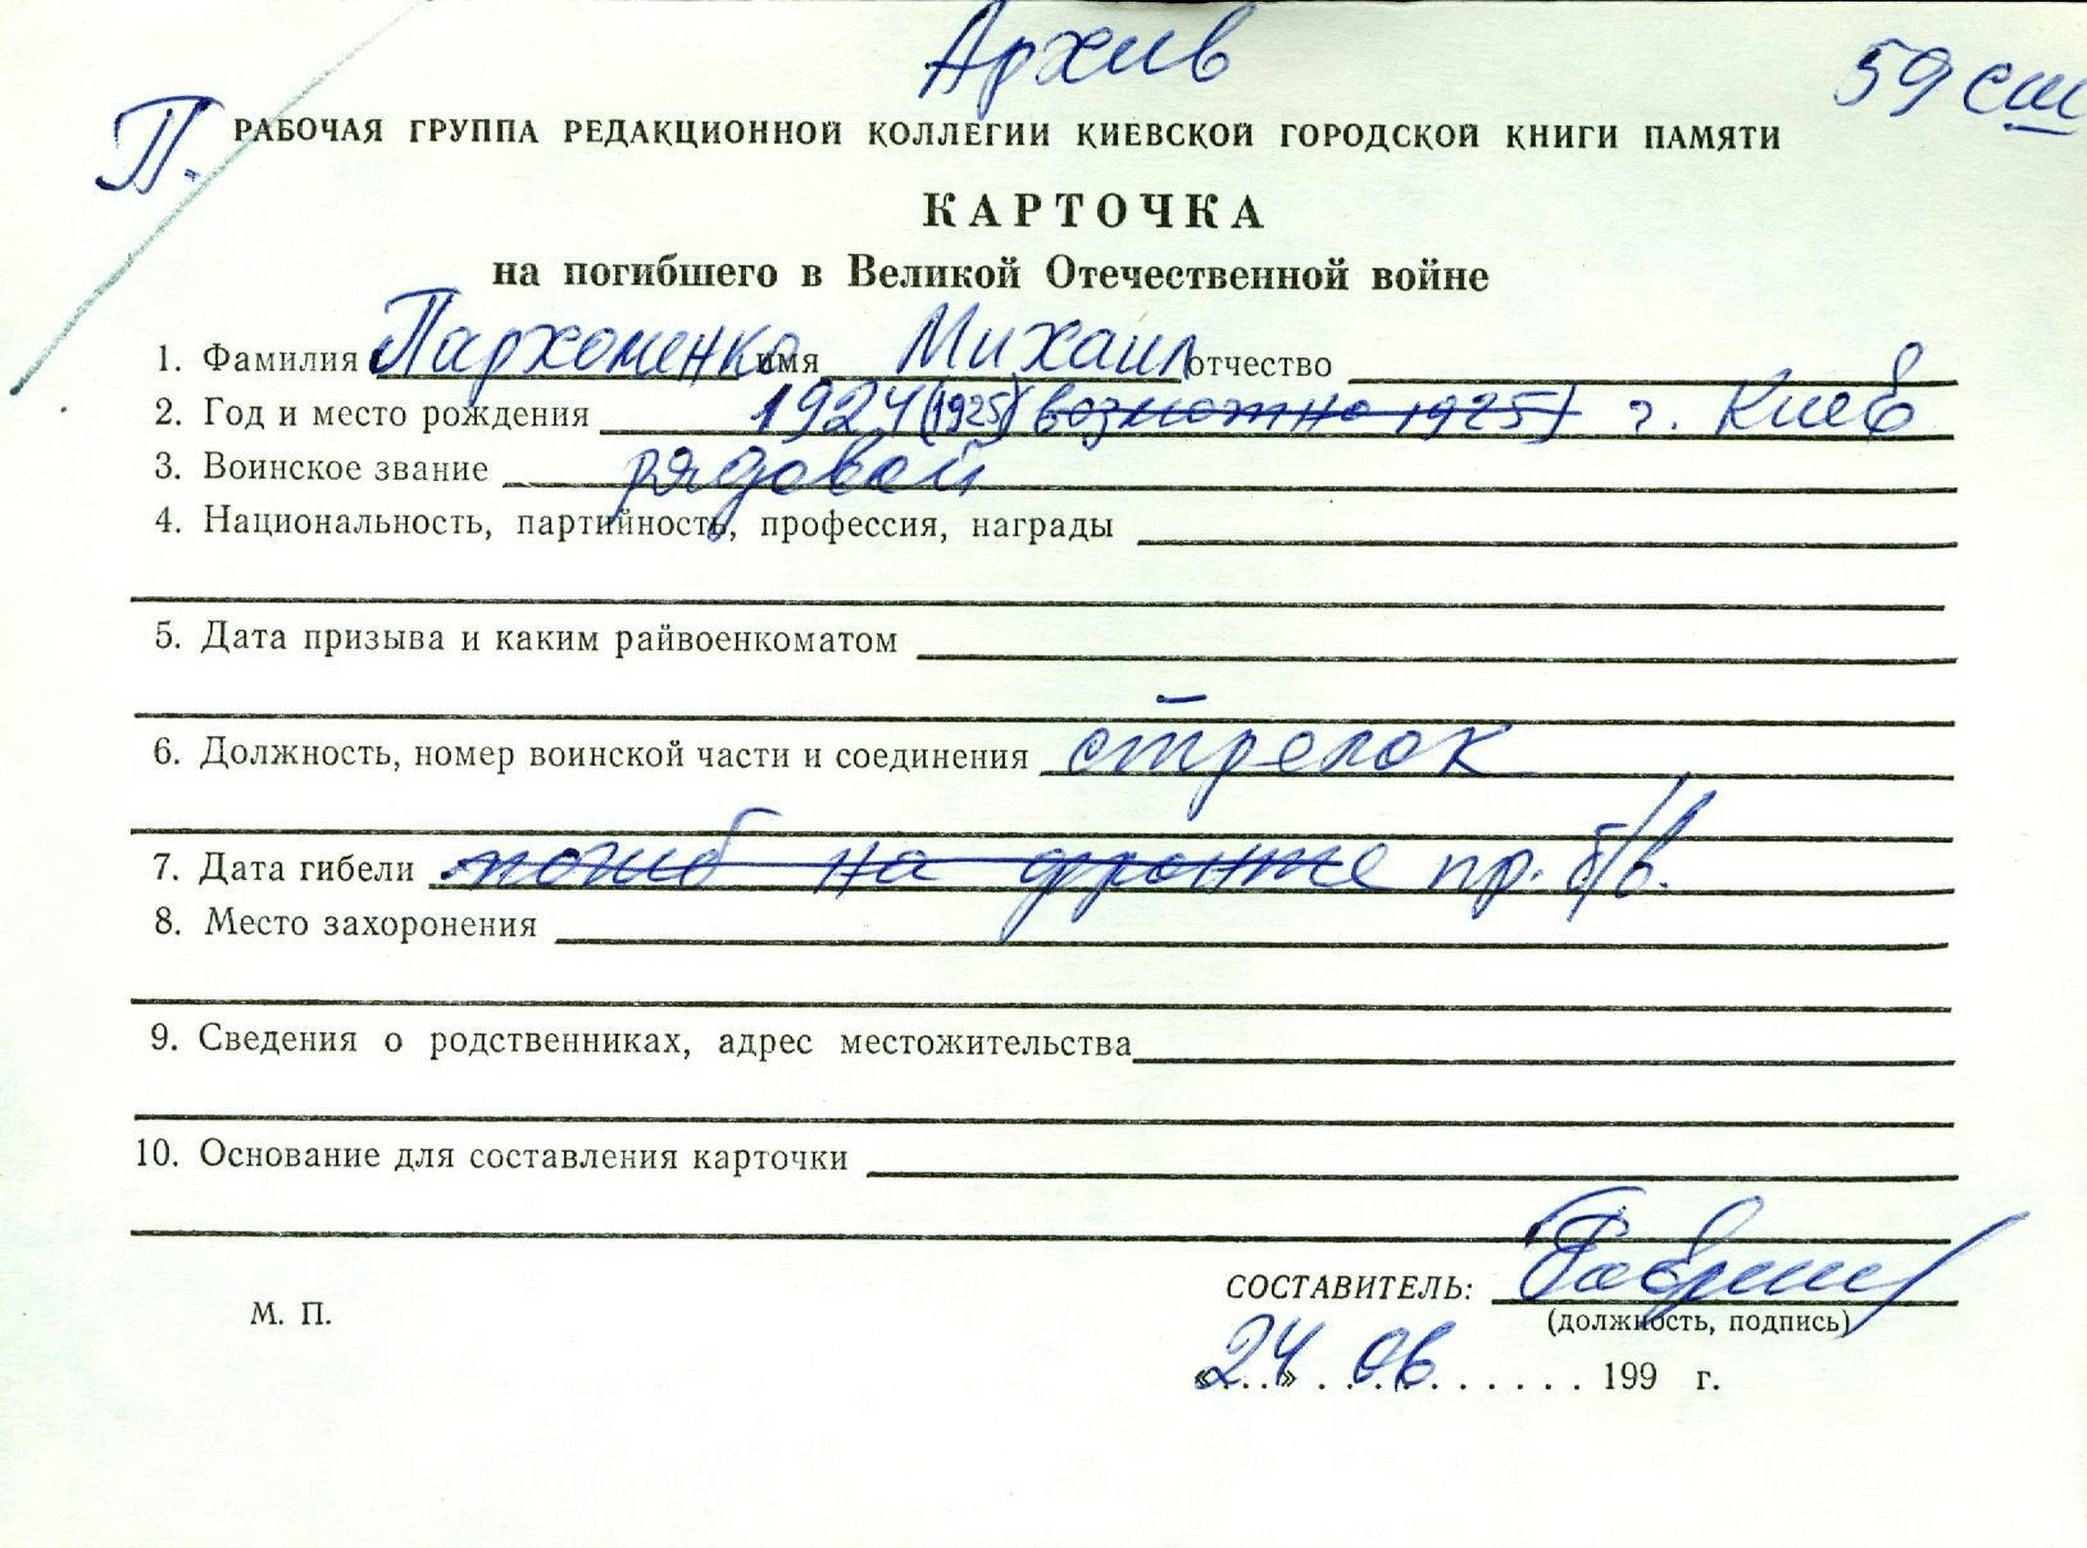 Архив
59 сш
П.
РАБОЧАЯ ГРУППА РЕДАКЦИОННОЙ КОЛЛЕГИИ КИЕВСКОЙ ГОРОДСКОЙ КНИГИ ПАМЯТИ
КАРТОЧКА
на погибшего в Великой Отечественной войне
1. Фамилия Пархоменко имя Михаил отчество
2. Год и место рождения 1924 (1925) (возможно 1925) г. Киев
3. Воинское звание рядовой
4. Национальность, партийность, профессия, награды
5. Дата призыва и каким райвоенкоматом
6. Должность, номер воинской части и соединения стрелок
7. Дата гибели погиб на фронте пр. б/в.
8. Место захоронения
9. Сведения о родственниках, адрес местожительства
10. Основание для составления карточки
СОСТАВИТЕЛЬ:
(должность, подпись)
М. П.
«24» 06 199 г.